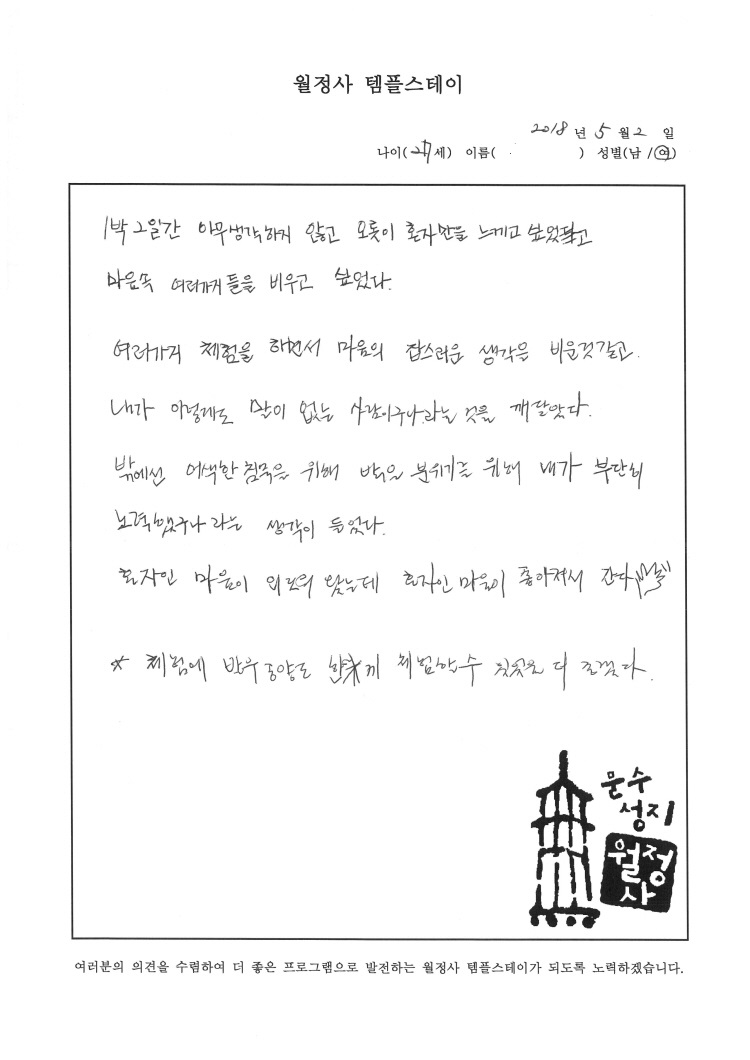 월정사 템플스테이
2018 년 5 월 2 일
나이( 27 세) 이름( ) 성별(남 / 여)
1박 2일간 아무생각하지 않고 오롯이 혼자만을 느끼고 싶었고
마음속 여러가지들을 비우고 싶었다.
여러가지 체험을 하면서 마음의 잡스러운 생각을 비운것같고.
내가 이렇게도 말이 없는 사람이구나라는 것을 깨달았다.
밖에선 어색한 침묵을 위해 밝은 분위기를 위해 내가 부단히
노력했구나 라는 생각이 들었다.
혼자인 마음이 외로워 왔는데 혼자인 마음이 좋아져서 간다
* 체험에 발우공양도 함께 체험할수 있었음 더 좋겠다.
문수
성지
월정
사
여러분의 의견을 수렴하여 더 좋은 프로그램으로 발전하는 월정사 템플스테이가 되도록 노력하겠습니다.